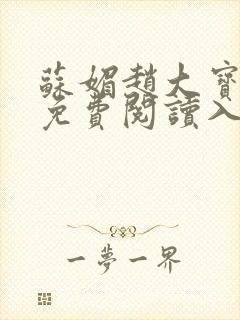 蘇媚趙大寶
免費閱讀入
一夢一界